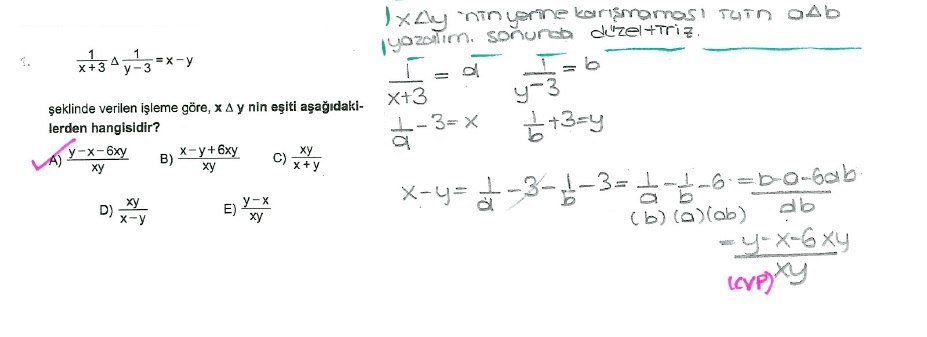 1.
1/(x+3) Δ 1/(y−3) = x−y
şeklinde verilen işleme göre, x Δ y nin eşiti aşağıdaki-
lerden hangisidir?
A) (y−x−6xy)/xy B) (x−y+6xy)/xy C) xy/(x+y)
D) xy/(x−y) E) (y−x)/xy
xΔy 'nin yerine karışmaması için aΔb
yazalım. sonunda düzeltiriz.
1/(x+3) = a 1/(y−3) = b
1/a −3=x 1/b +3=y
x−y= 1/a −3− 1/b −3= 1/a − 1/b −6 = (b−a−6ab)/ab
(b) (a) (ab)
= (y−x−6xy)/xy
(CVP)